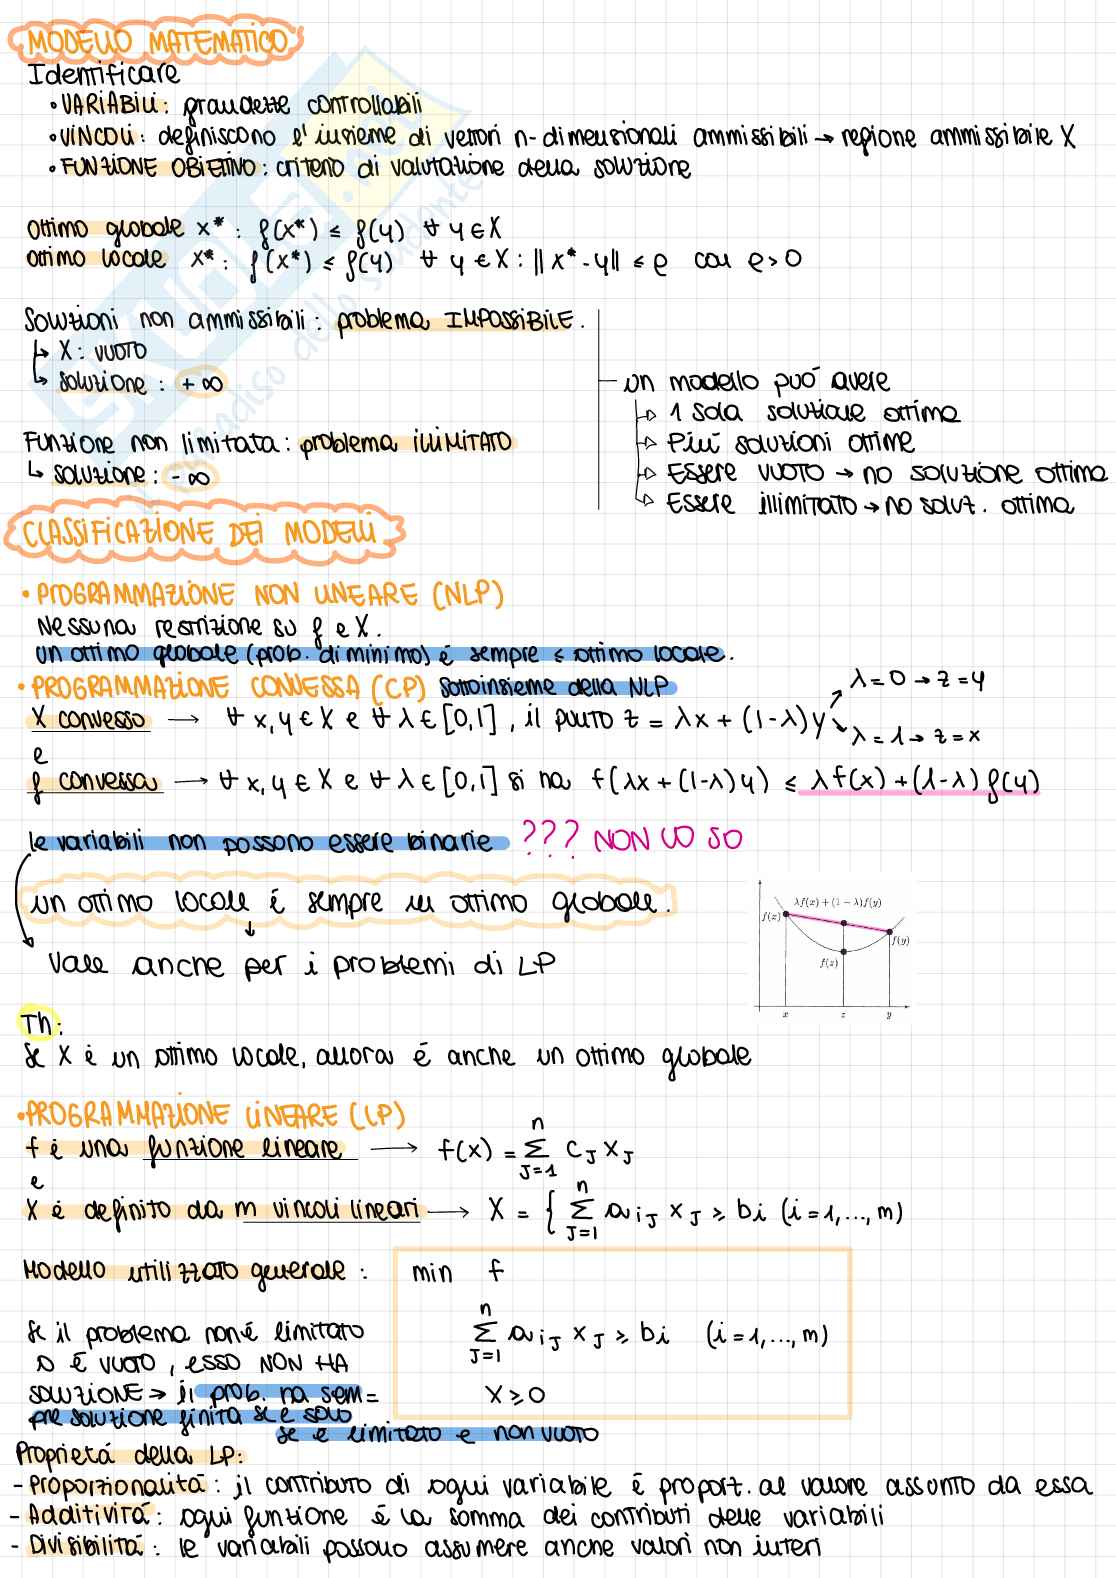 MODELLO MATEMATICO
Identificare
• VARIABILI: grandezze controllabili
• VINCOLI: definiscono l'insieme di vettori n-dimensionali ammissibili → regione ammissibile X
• FUNZIONE OBIETTIVO: criterio di valutazione della soluzione
Ottimo globale x* : f(x*) ≤ f(y) ∀ y ∈ X
Ottimo locale x* : f(x*) ≤ f(y) ∀ y ∈ X : ||x* - y|| ≤ e con e > 0
Soluzioni non ammissibili: problema IMPOSSIBILE.
↳ X: VUOTO
↳ soluzione: +∞
Funzione non limitata: problema ILLIMITATO
↳ soluzione: -∞
un modello può avere
▷ 1 sola soluzione ottima
▷ Più soluzioni ottime
▷ Essere VUOTO → no soluzione ottima
▷ Essere illimitato → no soluz. ottima
CLASSIFICAZIONE DEI MODELLI
• PROGRAMMAZIONE NON LINEARE (NLP)
Nessuna restrizione su f e X.
un ottimo globale (prob. di minimo) é sempre ≤ ottimo locale.
• PROGRAMMAZIONE CONVESSA (CP) sottoinsieme della NLP
λ = 0 → z = y
X convesso → ∀ x, y ∈ X e ∀ λ ∈ [0,1], il punto z = λx + (1-λ)y
λ = 1 → z = x
e
f convessa → ∀ x, y ∈ X e ∀ λ ∈ [0,1] si ha f(λx + (1-λ)y) ≤ λf(x) + (1-λ) f(y)
le variabili non possono essere binarie ??? NON LO SO
un ottimo locale é sempre un ottimo globale.
Vale anche per i problemi di LP
λf(x) + (1 − λ)f(y)
f(x)
f(y)
f(z)
x z y
Th:
Se X è un ottimo locale, allora é anche un ottimo globale
• PROGRAMMAZIONE LINEARE (LP)
f é una funzione lineare → f(x) = Σ_{J=1}^{n} c_J x_J
e
X é definito da m vincoli lineari → X = { Σ_{J=1}^{n} a_{iJ} x_J ≥ b_i (i=1,...,m)
Modello utilizzato generale:
min f
Σ_{J=1}^{n} a_{iJ} x_J ≥ b_i (i=1,...,m)
X ≥ 0
Se il problema non é limitato
o é vuoto, esso NON HA
SOLUZIONE → il prob. ha sem=
pre soluzione finita se e solo
se é limitato e non vuoto
Proprietá della LP:
- Proporzionalitá: il contributo di ogni variabile é proport. al valore assunto da essa
- Additivitá: ogni funzione é la somma dei contributi delle variabili
- Divisibilitá: le variabili possono assumere anche valori non interi